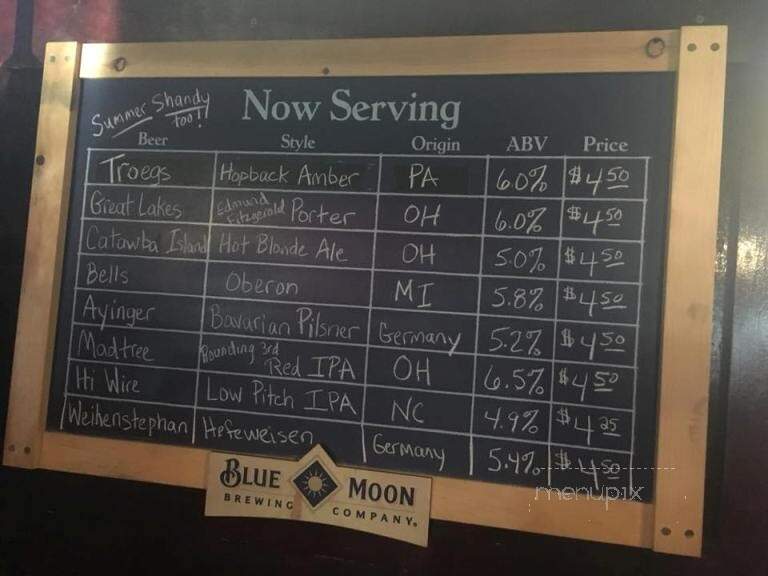 Summer Shandy too!!
Now Serving
Beer Style Origin ABV Price
Troegs Hopback Amber PA 6.0% $4.50
Great Lakes Edmund Fitzgerald Porter OH 6.0% $4.50
Catawba Island Hot Blonde Ale OH 5.0% $4.50
Bells Oberon MI 5.8% $4.50
Ayinger Bavarian Pilsner Germany 5.2% $4.50
Madtree Rounding 3rd Red IPA OH 6.5% $4.50
Hi Wire Low Pitch IPA NC 4.9% $4.25
Weihenstephan Hefeweisen Germany 5.4% $4.50
BLUE MOON
BREWING COMPANY
menupix